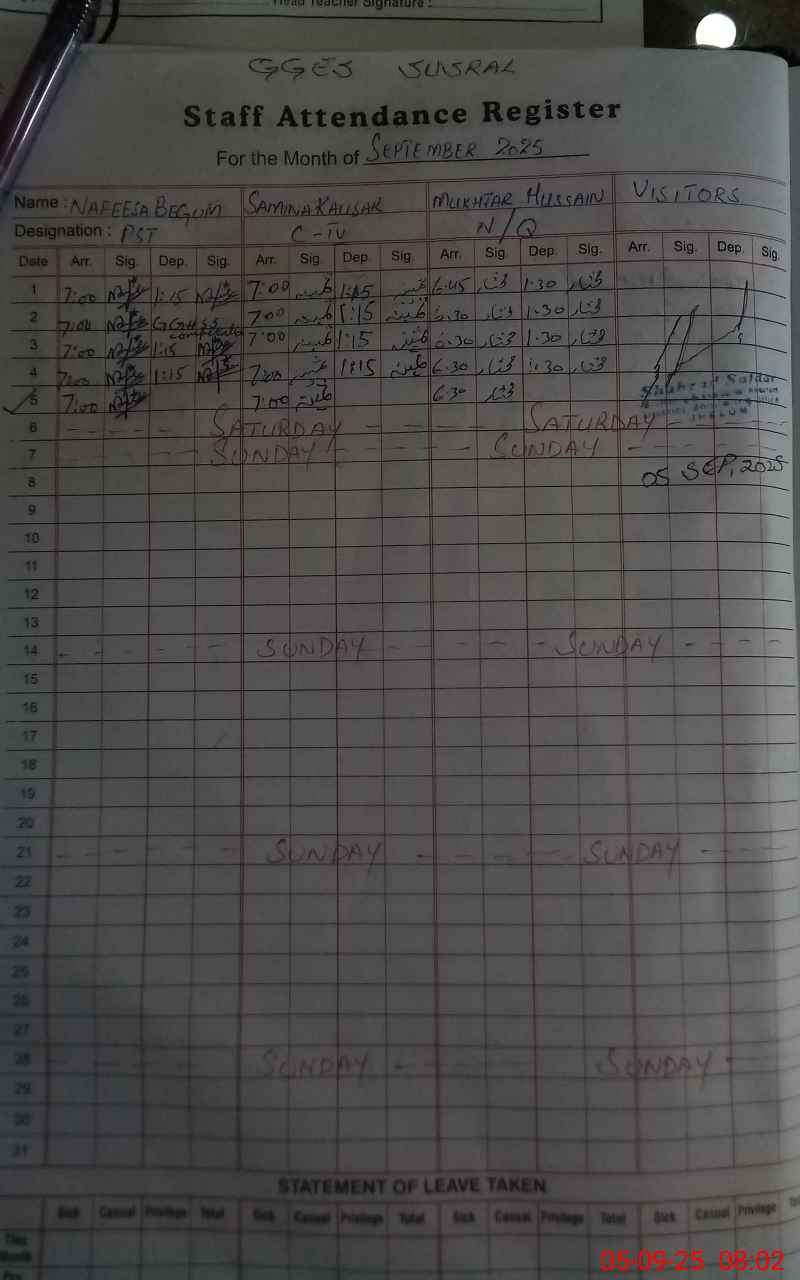 Head Teacher Signature :
GGES SUSRAL
Staff Attendance Register
For the Month of SEPTEMBER 2025
Name : NAFEESA BEGUM SAMINA KAUSAR MUKHTAR HUSSAIN VISITORS
Designation : PST C-IV N/Q
Date Arr. Sig. Dep. Sig. Arr. Sig. Dep. Sig. Arr. Sig. Dep. Sig. Arr. Sig. Dep. Sig.
1 7:00 1:15 7:00 1:15 6:45 مختار 1:30 مختار
2 7:00 GGHSS 7:00 1:15 6:30 مختار 1:30 مختار
3 7:00 1:15 7:00 1:15 6:30 مختار 1:30 مختار
4 7:00 1:15 7:00 1:15 6:30 مختار 1:30 مختار
5 7:00 7:00 6:30 مختار
6 SATURDAY SATURDAY
7 SUNDAY SUNDAY
8 05 SEP, 2025
9
10
11
12
13
14 SUNDAY SUNDAY
15
16
17
18
19
20
21 SUNDAY SUNDAY
22
23
24
25
26
27
28 SUNDAY SUNDAY
29
30
31
STATEMENT OF LEAVE TAKEN
Sick Casual Privilege Total Sick Casual Privilege Total Sick Casual Privilege Total Sick Casual Privilege
This
Month
05-09-25 08:02